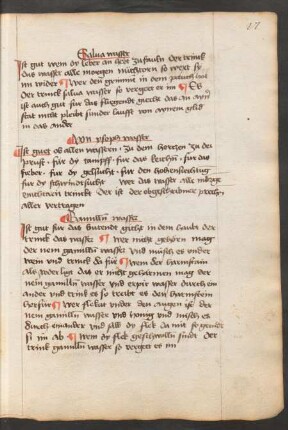 17
Salua wasser
Ist gut wem dy leber an hebt zu faulen der trinck
das wasser alle morgen nüchtern so wext sy
im wider Wer den grimmen in dem pauch hat
der trinck salua wasser so verget er im Es
ist auch gut für das fliegende gicht das an
stat nicht pleibt sunder laufft von einem glid
in das ander
Von ysopp wasser
Ist guet ob allen wassern Zu dem hertzen Zu der
prust für dy dampff für das keichen für das
fieber für dy gelsucht für den
für dy wer das wasser alle
trinck der ist der
aller vertragen
Camillen wasser
Ist gut für das gicht in dem leibe der
trinck das wasser Wer nicht geharn mag
der nem gamillen wasser vnd misch es vnder
wein vnd trinck da für Wem der harnstain
als ligt das er nicht geharnen mag der
nem gamillen wasser vnd wasser durch ein
ander vnd trinck es so treibt es den harnstain
Wer fleck vnder den augen ist der
nem gamillen wasser vnd honig vnd misch es
durch einander vnd salb dy fleck da mit so
sy im ab Wem dy fleck geschwollen sindt der
trinck gamillen wasser so verget es im